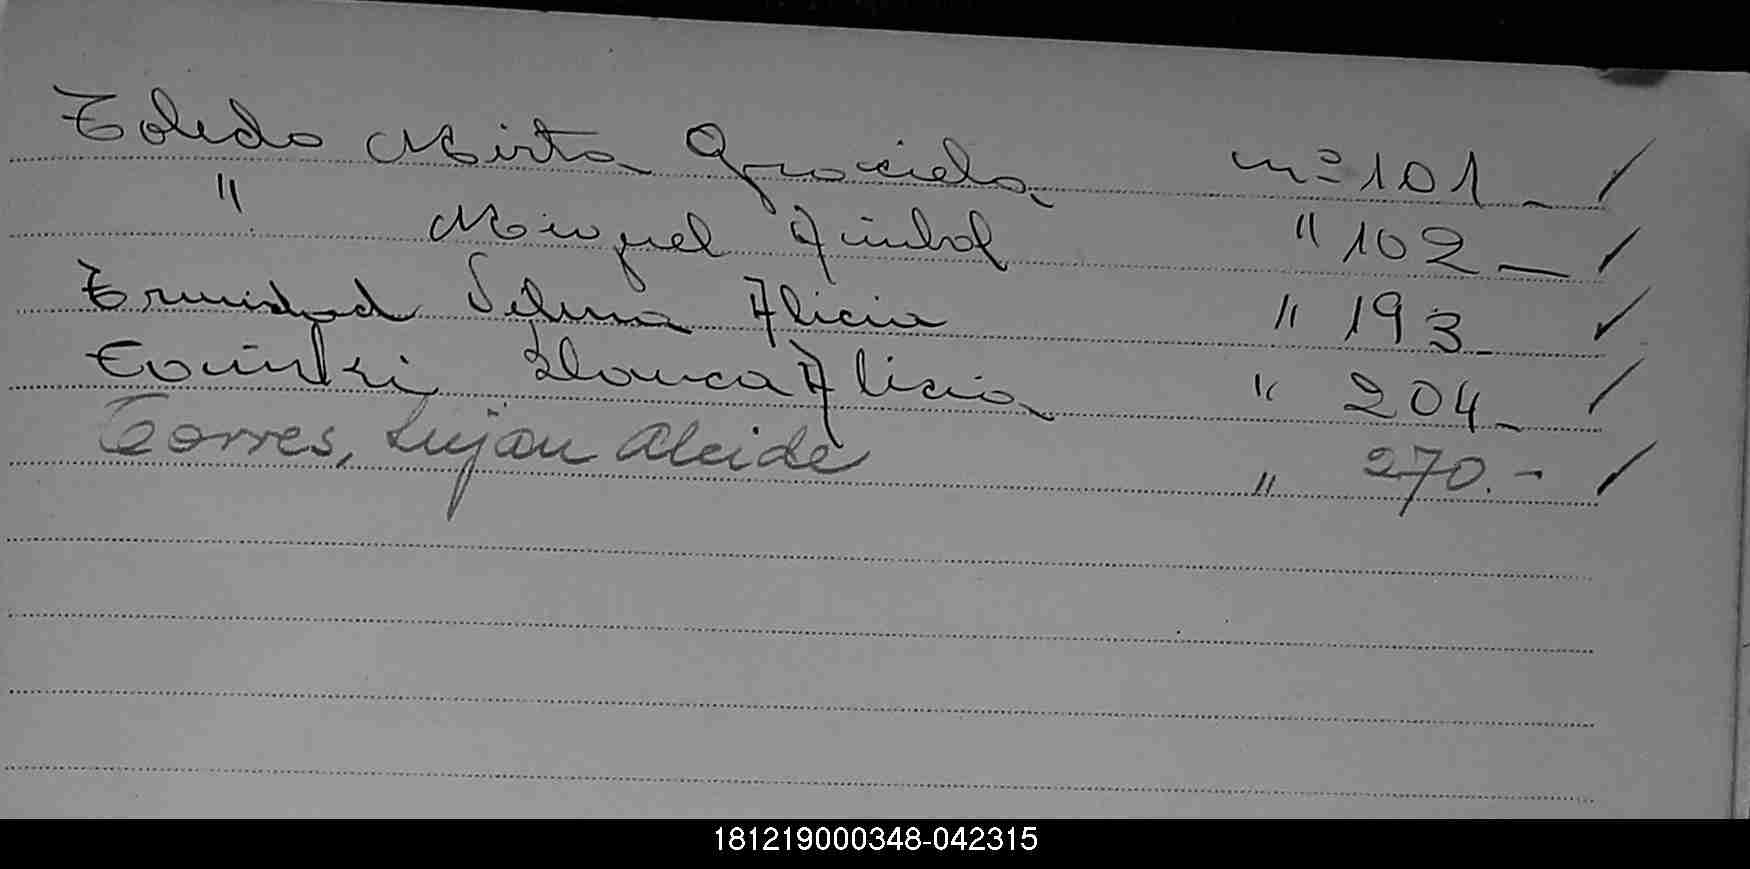 Toledo Mirta Graciela nº 101 _ /
" Miguel " 102 _ /
Trinidad Selma Alicia " 193 _ /
Blanca Alicia " 204 _ /
Torres, Luján Alcide " 270.- /
181219000348-042315